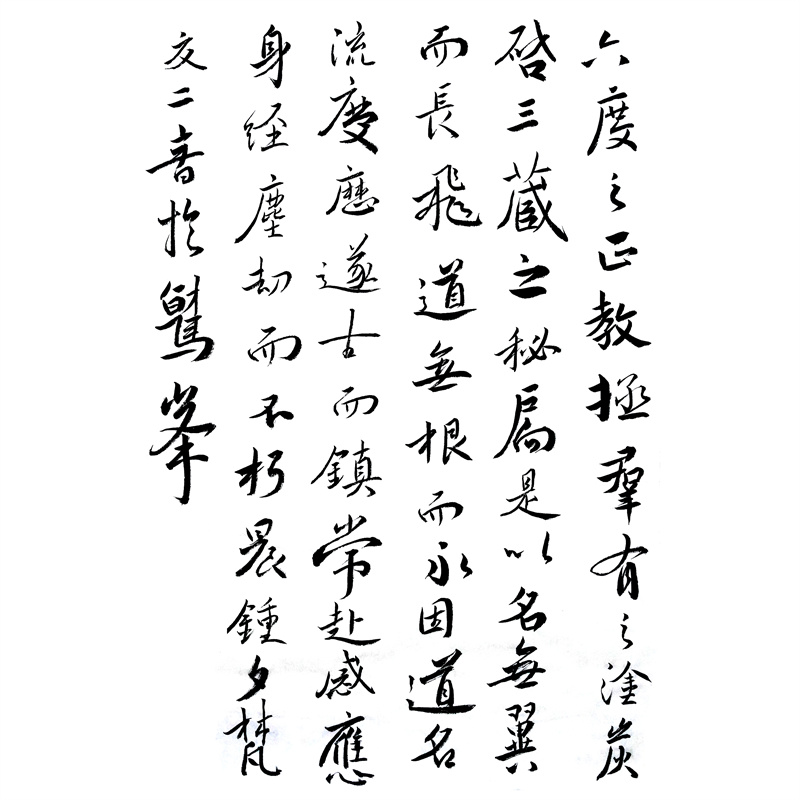 六度之正教拯羣有之塗炭
啓三藏之秘扃是以名無翼
而長飛道無根而永固道名
流慶歷遂古而鎮常赴感應
身經塵劫而不朽晨鍾夕梵
交二音於鷲峯